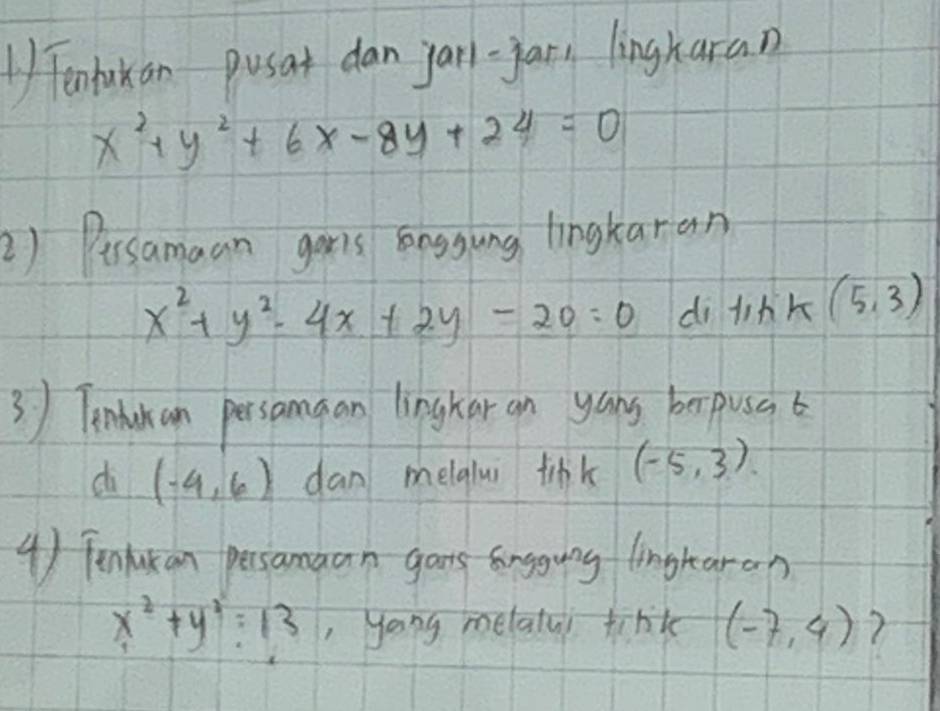 1) Tentukan pusat dan jari-jari lingkaran
x² + y² + 6x - 8y + 24 = 0
2) Persamaan garis singgung lingkaran
x² + y² - 4x + 2y - 20 = 0 di titik (5,3)
3) Tentukan persamaan lingkaran yang berpusat
di (-4,6) dan melalui titik (-5,3).
4) Tentukan persamaan garis singgung lingkaran
x² + y² = 13, yang melalui titik (-7,4)?